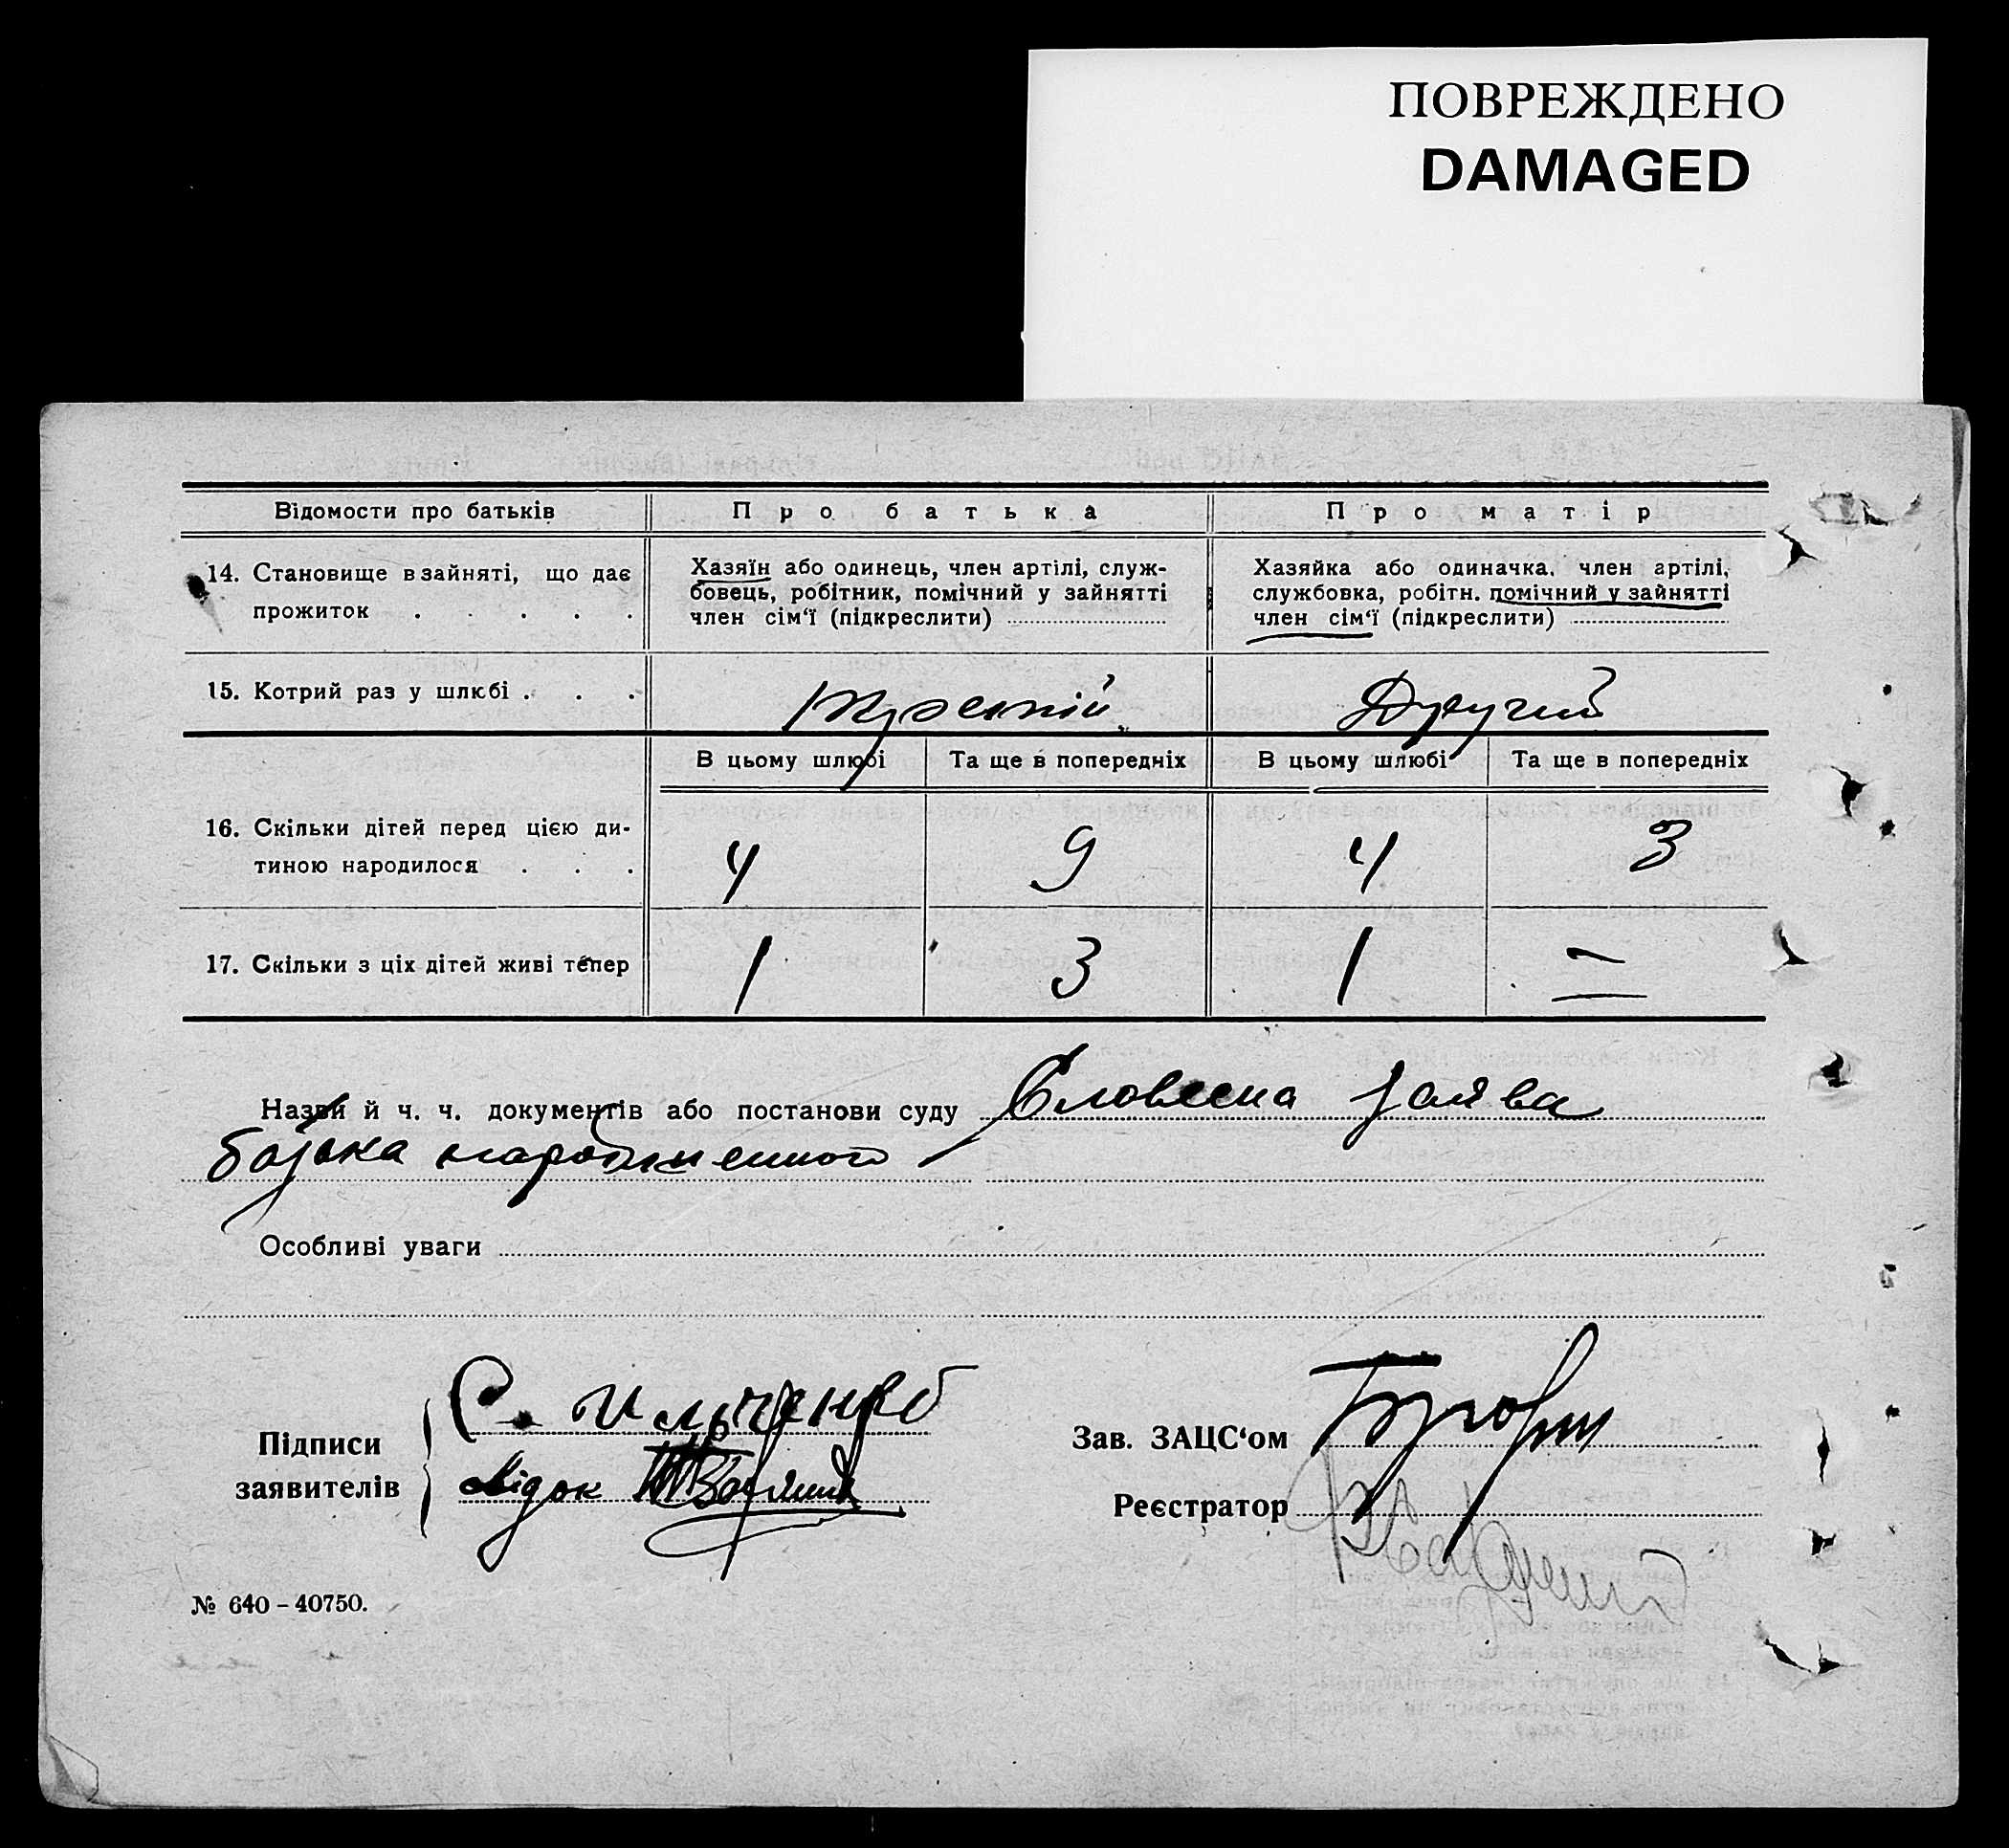 ПОВРЕЖДЕНО
DAMAGED
Відомости про батьків
Про батька
Про матір
14. Становище в зайняті, що дає
прожиток . . . . .
Хазяїн або одинець, член артілі, служ-
бовець, робітник, помічний у зайнятті
член сім‘ї (підкреслити)
Хазяйка або одиначка, член артілі,
службовка, робітн. помічний у зайнятті
член сім‘ї (підкреслити)
15. Котрий раз у шлюбі . . .
третій
Другий
В цьому шлюбі
Та ще в попередніх
В цьому шлюбі
Та ще в попередніх
16. Скільки дітей перед цією ди-
тиною народилося . . .
4
9
4
3
17. Скільки з ціх дітей живі тепер
1
3
1
–
Назви й ч. ч. документів або постанови суду Словесна заява
батька
Особливі уваги
Підписи
заявителів
С. Ильченко
свідок
Зав. ЗАЦС‘ом
Реєстратор
№ 640 – 40750.